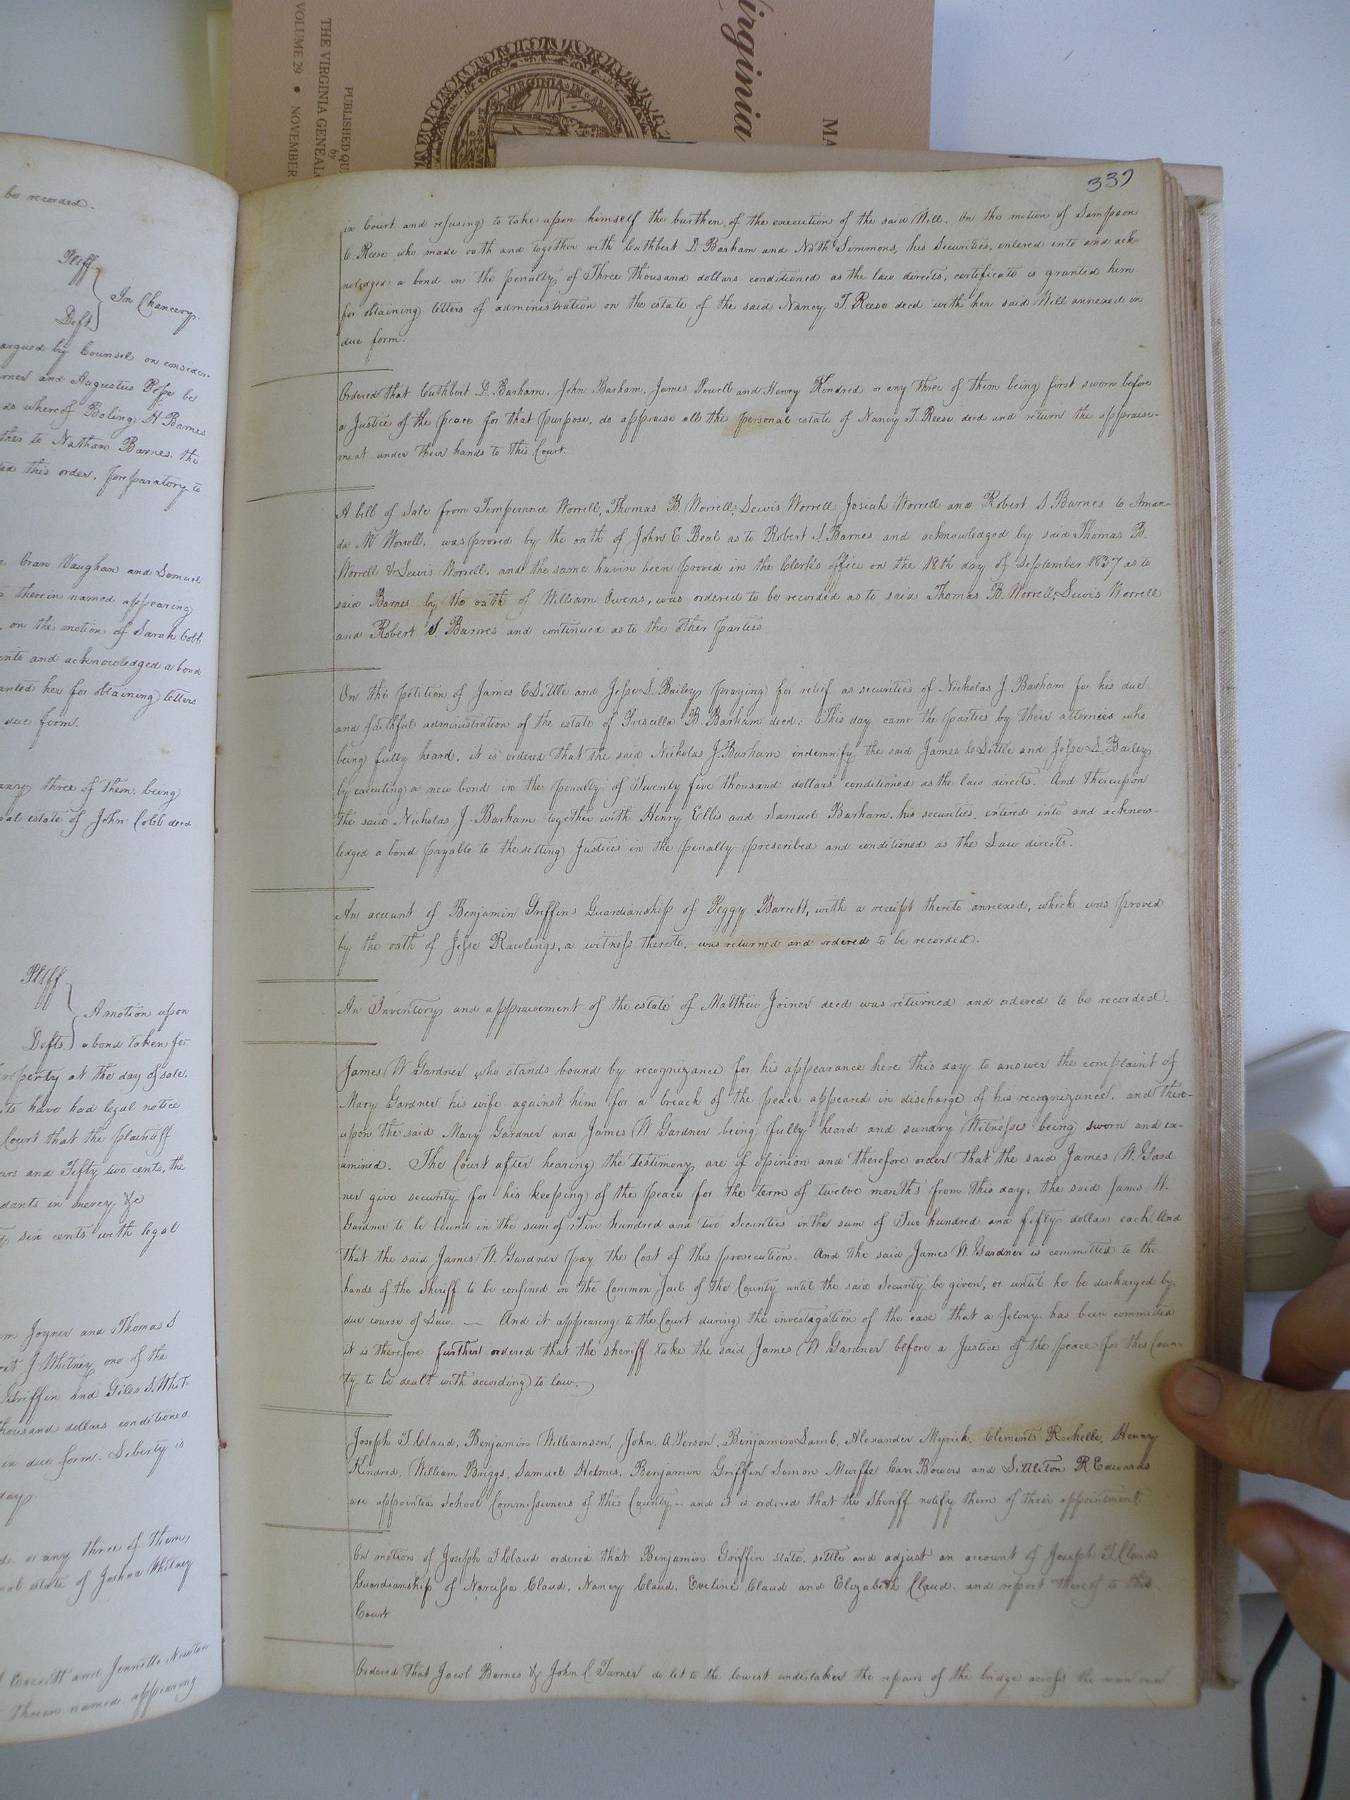 Virginia
MA
PUBLISHED QU
by
THE VIRGINIA GENEAL
VOLUME 29 • NOVEMBER
VIRGINIA
339
be recorded.
Pltff
Deft
In Chancery.
argued by Counsel on consider-
and Augustus Pope be
whereof Boling H Barnes
to Nathan Barnes. the
this order, preparatory to
Cran Vaughan and Samuel
therein named appearing
on the motion of Sarah Cobb
and acknowledged a bond
her for obtaining letters
due form.
any three of them being
estate of John Cobb decd
Pltff
Defts
A motion upon
a bond taken for
property at the day of sale.
have had legal notice
Court that the plaintiff
and Fifty two cents, the
in mercy &c
six cents with legal
Joyner and Thomas S
J Whitney one of the
Griffin and Giles S. Whit-
thousand dollars conditioned
in due form. Liberty is
day
or any three of them,
estate of Joshua Whitney
Everitt and Jennette Newton
therein named appearing
in Court and refusing to take upon himself the burthen of the execution of the said Will. On the motion of Sampson
C. Reese who made oath and together with Cuthbert D. Barham and Nath'l Simmons, his Securities, entered into and ack-
noledged a bond in the penalty of Three thousand dollars conditioned as the law directs, certificate is granted him
for obtaining letters of administration on the estate of the said Nancy T. Reese decd with her said Will annexed in
due form.
Ordered that Cuthbert D. Barham, John Barham, James Powell and Henry Kindred or any three of them being first sworn before
a Justice of the peace for that purpose, do appraise all the personal estate of Nancy T. Reese decd and return the appraise-
ment under their hands to this Court.
A bill of Sale from Temperance Worrell, Thomas B. Worrell, Lewis Worrell, Josiah Worrell and Robert S. Barnes to Aman-
da M Worrell, was proved by the oath of John E Beal as to Robert S. Barnes and acknowledged by said Thomas B.
Worrell & Lewis Worrell, and the same havin been proved in the Clerk's office on the 18th day of September 1837 as to
said Barnes by the oath of William Owens, was ordered to be recorded as to said Thomas B. Worrell, Lewis Worrell
and Robert S. Barnes and continued as to the other parties
On the petition of James C Little and Jesse L. Bailey praying for relief as securities of Nicholas J. Barham for his due
and faithful administration of the estate of Priscilla B. Barham decd: This day came the parties by their attornies who
being fully heard, it is ordered that the said Nicholas J. Barham indemnify the said James C Little and Jesse L. Bailey
by executing a new bond in the penalty of Twenty five thousand dollars conditioned as the law directs. And thereupon
the said Nicholas J. Barham together with Henry Ellis and Samuel Barham, his securities, entered into and acknow-
ledged a bond payable to the setting Justices in the penalty prescribed and conditioned as the Law directs.
An account of Benjamin Griffins Guardianship of Peggy Barrett, with a receipt thereto annexed, which was proved
by the oath of Jesse Rawlings, a witness thereto, was returned and ordered to be recorded.
An Inventory and appraisement of the estate of Matthew Joiner decd was returned and ordered to be recorded.
James W Gardner who stands bound by recognizance for his appearance here this day to answer the complaint of
Mary Gardner his wife against him for a breach of the peace appeared in discharge of his recognizance, and there-
upon the said Mary Gardner and James W Gardner being fully heard and sundry Witnesse being sworn and ex-
amined. The Court after hearing the testimony are of opinion and therefore order that the said James W. Gard
ner give security for his keeping of the peace for the term of twelve months from this day; the said James W.
Gardner to be bound in the sum of Five hundred and two Securities in the sum of Two hundred and fifty dollars each And
that the said James W. Gardner pay the Cost of this prosecution. And the said James W. Gardner is committed to the
hands of the Sheriff to be confined in the Common Jail of the County until the said Security be given, or until he be discharged by
due course of Law. — And it appearing to the Court during the investagation of the case that a felony has been committed
it is therefore further ordered that the sheriff take the said James W Gardner before a Justice of the peace for this Coun-
ty to be dealt with according to law.
Joseph T. Claud, Benjamin Williamson, John A Person, Benjamin Lamb, Alexander Myrick, Clements Rochelle, Henry
Kindred, William Briggs, Samuel Holmes, Benjamin Griffin Simon Murffe Carr Bowers and Littleton R Edwards
are appointed School Commissioners of this County - and it is ordered that the Sheriff notify them of their appointment
On motion of Joseph T. Claud ordered that Benjamin Griffin state, settle and adjust an account of Joseph T. Clauds
Guardianship of Narcissa Claud, Nancy Claud, Eveline Claud and Elizabeth Claud, and report thereof to this
Court
Ordered that Jacob Barnes & John C Turner do let to the lowest undertaker the repairs of the bridge across the